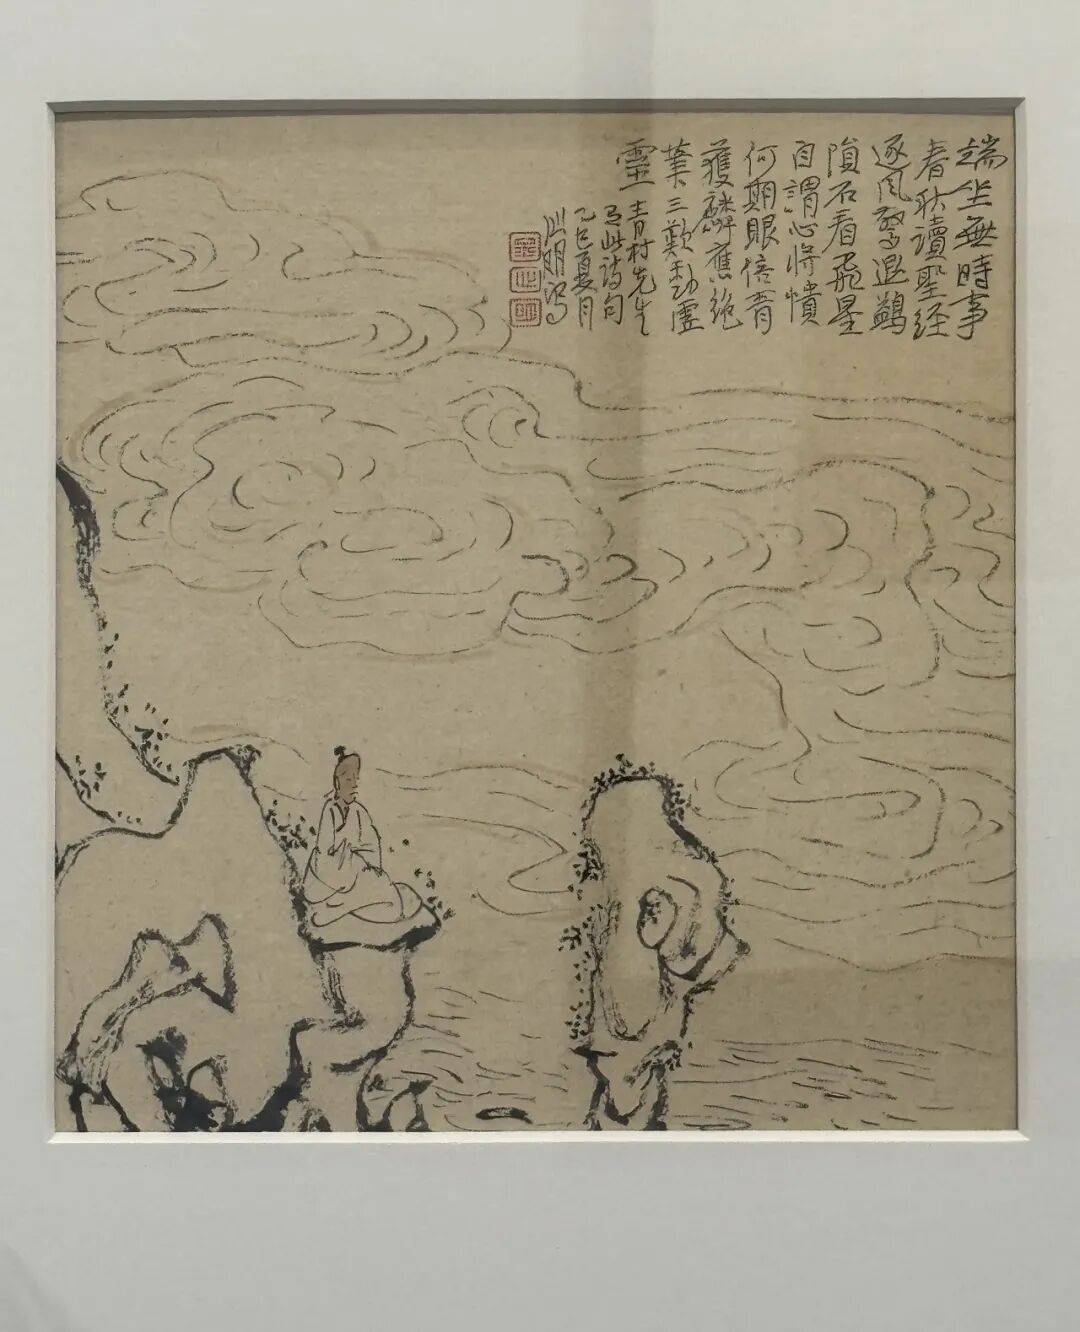 端坐無時事
春秋讀聖經
逐風驚退鷁
隕石看飛星
自謂心將憤
何期眼倍青
獲麟應絕
筆三歎動虛
靈青村先生
有此詩句
乙巳夏月
此明寫